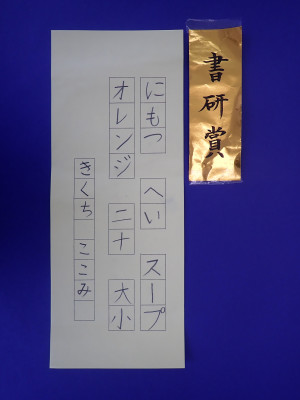 書研賞
にもつ　へい　スープ
オレンジ　二十　大小
きくち　ここみ